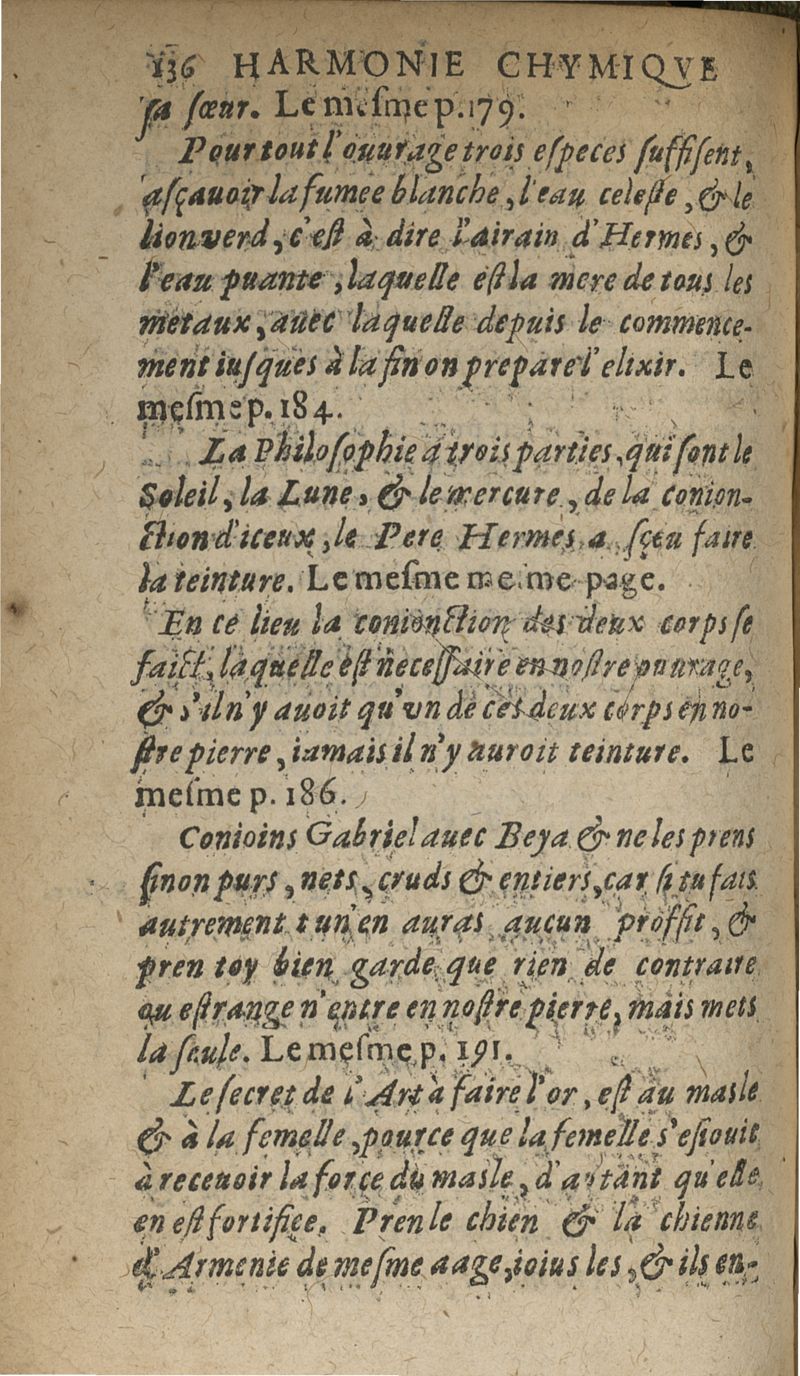 136 HARMONIE CHYMIQVE
ſa ſœur. Le meſme p. 179.
Pour tout l'ouurage trois eſpeces ſuffiſent,
aſçauoir la fumee blanche, l'eau celeſte, & le
lion verd, c'eſt à dire l'airain d'Hermes, &
l'eau puante, laquelle eſt la mere de tous les
metaux, auec laquelle depuis le commence-
ment iuſques à la fin on prepare l'elixir. Le
meſme p. 184.
La Philoſophie a trois parties, qui ſont le
Soleil, la Lune, & le mercure, de la conion-
ction d'iceux, le Pere Hermes a ſçeu faire
la teinture. Le meſme meſme page.
En ce lieu la conionction des deux corps ſe
faict, laquelle eſt neceſſaire en noſtre ouurage,
& s'il n'y auoit qu'vn de ces deux corps en no-
ſtre pierre, iamais il n'y auroit teinture. Le
meſme p. 186.
Conioins Gabriel auec Beya & ne les prens
ſinon purs, nets, cruds & entiers, car ſi tu fais
autrement tu n'en auras aucun proffit, &
pren toy bien garde que rien de contraire
ou eſtrange n'entre en noſtre pierre, mais mets
la ſeule. Le meſme p. 191.
Le ſecret de l'Art à faire l'or, eſt au masle
& à la femelle, pource que la femelle s'eſiouit
à receuoir la force du masle, d'autant qu'elle
en eſt fortifiee. Pren le chien & la chienne
d'Armenie de meſme aage, ioius les, & ils en-